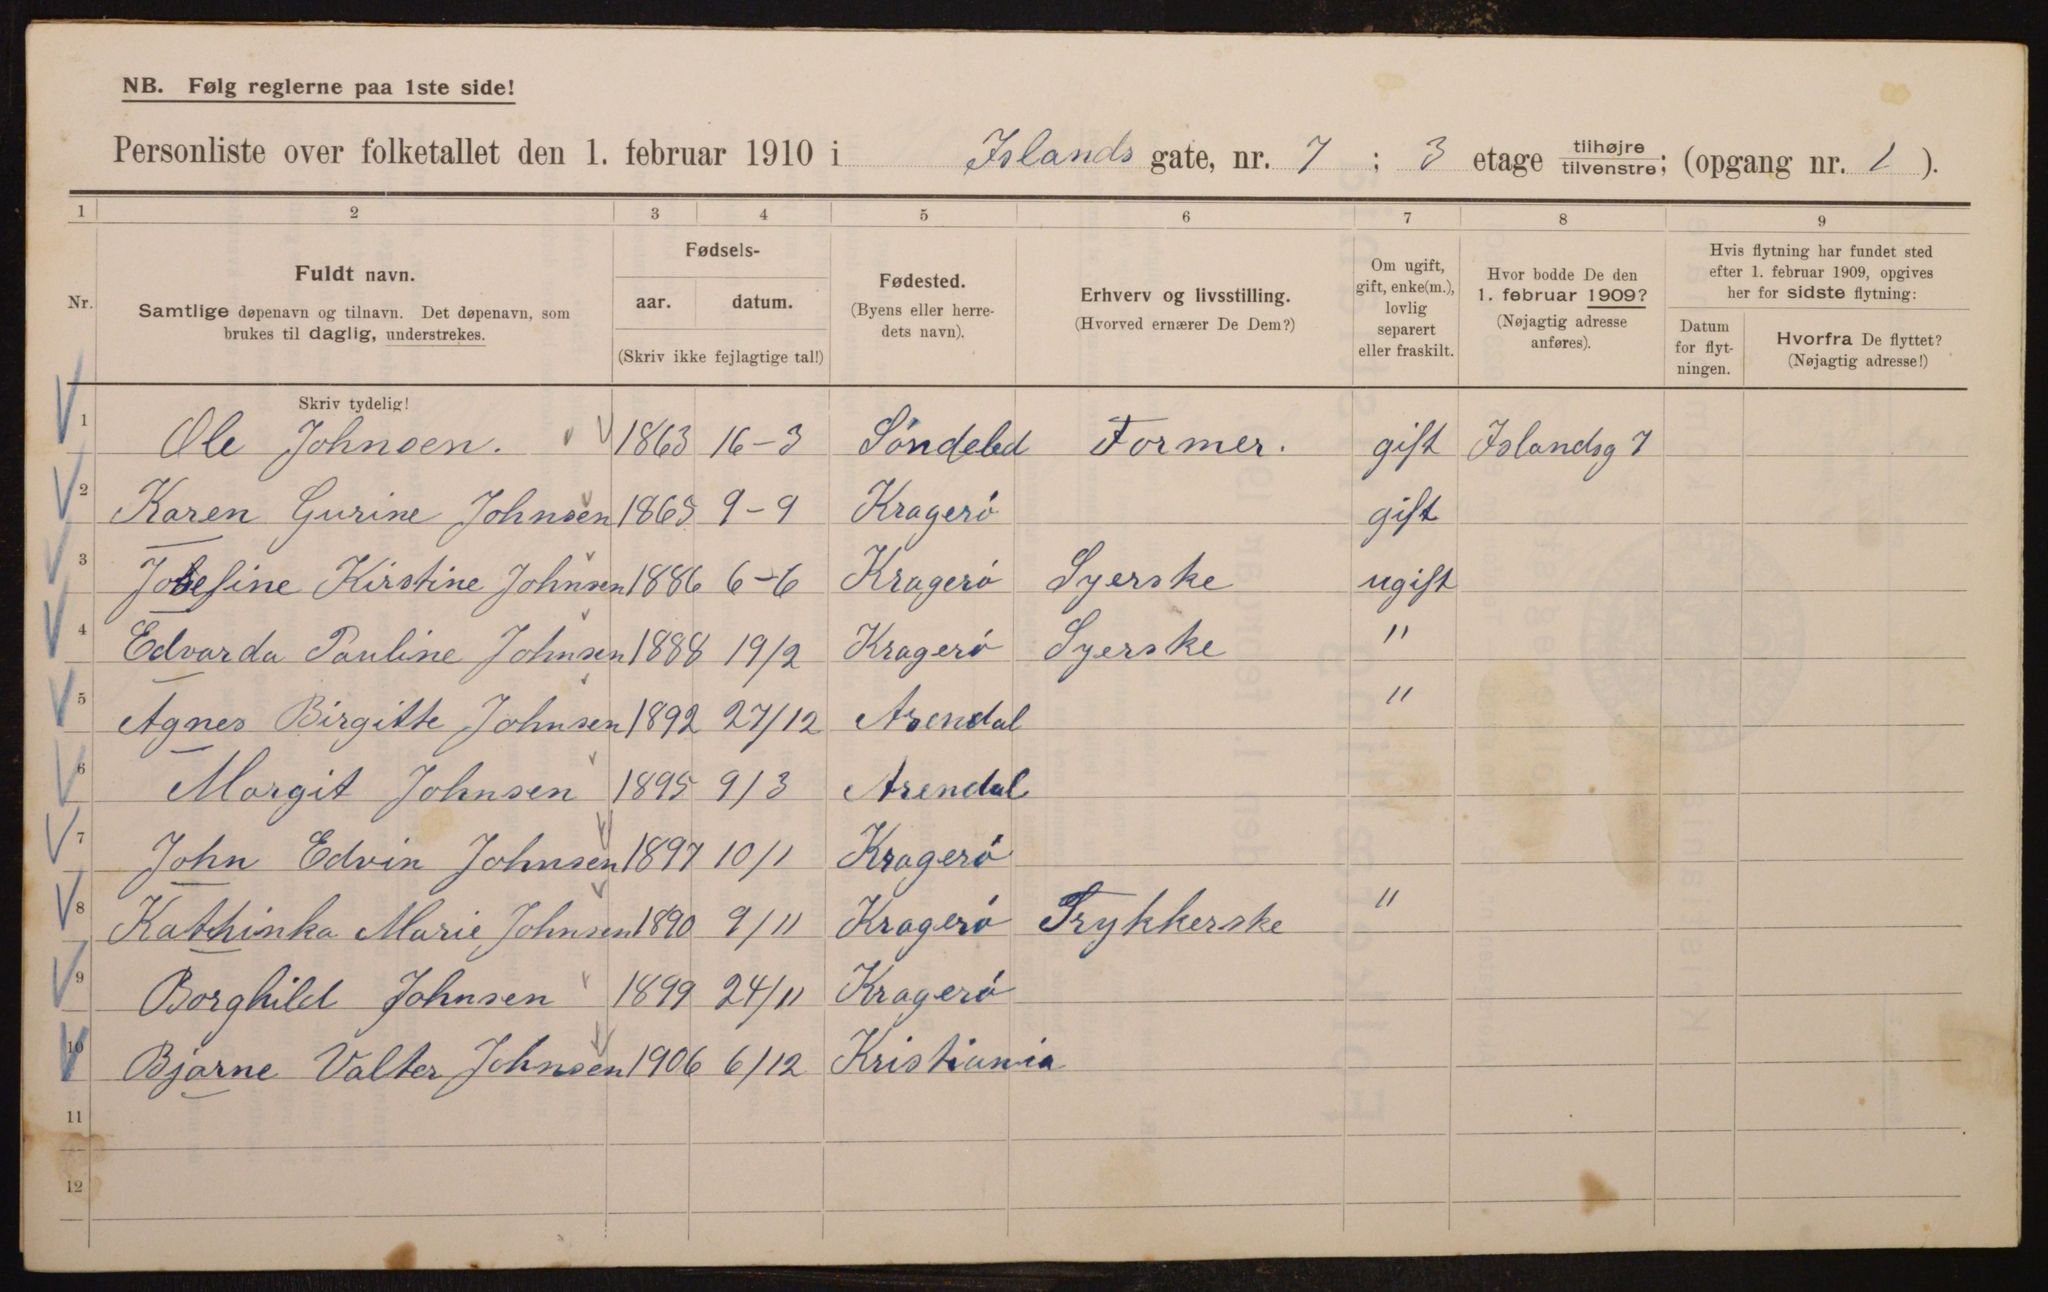 NB. Følg reglerne paa 1ste side!
Personliste over folketallet den 1. februar 1910 i Islands gate, nr. 7 ; 3 etage tilhøjre tilvenstre; (opgang nr. 1 ).
1 2 3 4 5 6 7 8 9
Nr.
Fuldt navn.
Samtlige døpenavn og tilnavn. Det døpenavn, som
brukes til daglig, understrekes.
Fødsels-
aar. datum.
(Skriv ikke fejlagtige tal!)
Fødested.
(Byens eller herre-
dets navn).
Erhverv og livsstilling.
(Hvorved ernærer De Dem?)
Om ugift,
gift, enke(m.),
lovlig
separert
eller fraskilt.
Hvor bodde De den
1. februar 1909?
(Nøjagtig adresse
anføres).
Hvis flytning har fundet sted
efter 1. februar 1909, opgives
her for sidste flytning:
Datum
for flyt-
ningen.
Hvorfra De flyttet?
(Nøjagtig adresse!)
Skriv tydelig!
1 Ole Johnsen. 1863 16-3 Söndeled Former. gift Islandsg 7
2 Karen Gurine Johnsen 1863 9-9 Kragerö gift
3 Josefine Kirstine Johnsen 1886 6-6 Kragerö Syerske ugift
4 Edvarda Pauline Johnsen 1888 19/2 Kragerö Syerske "
5 Agnes Birgitte Johnsen 1892 27/12 Arendal "
6 Margit Johnsen 1895 9/3 Arendal
7 John Edvin Johnsen 1897 10/1 Kragerö
8 Kathinka Marie Johnsen 1890 9/11 Kragerö Trykkerske "
9 Borghild Johnsen 1899 24/11 Kragerö
10 Bjarne Valter Johnsen 1906 6/12 Kristiania
11
12